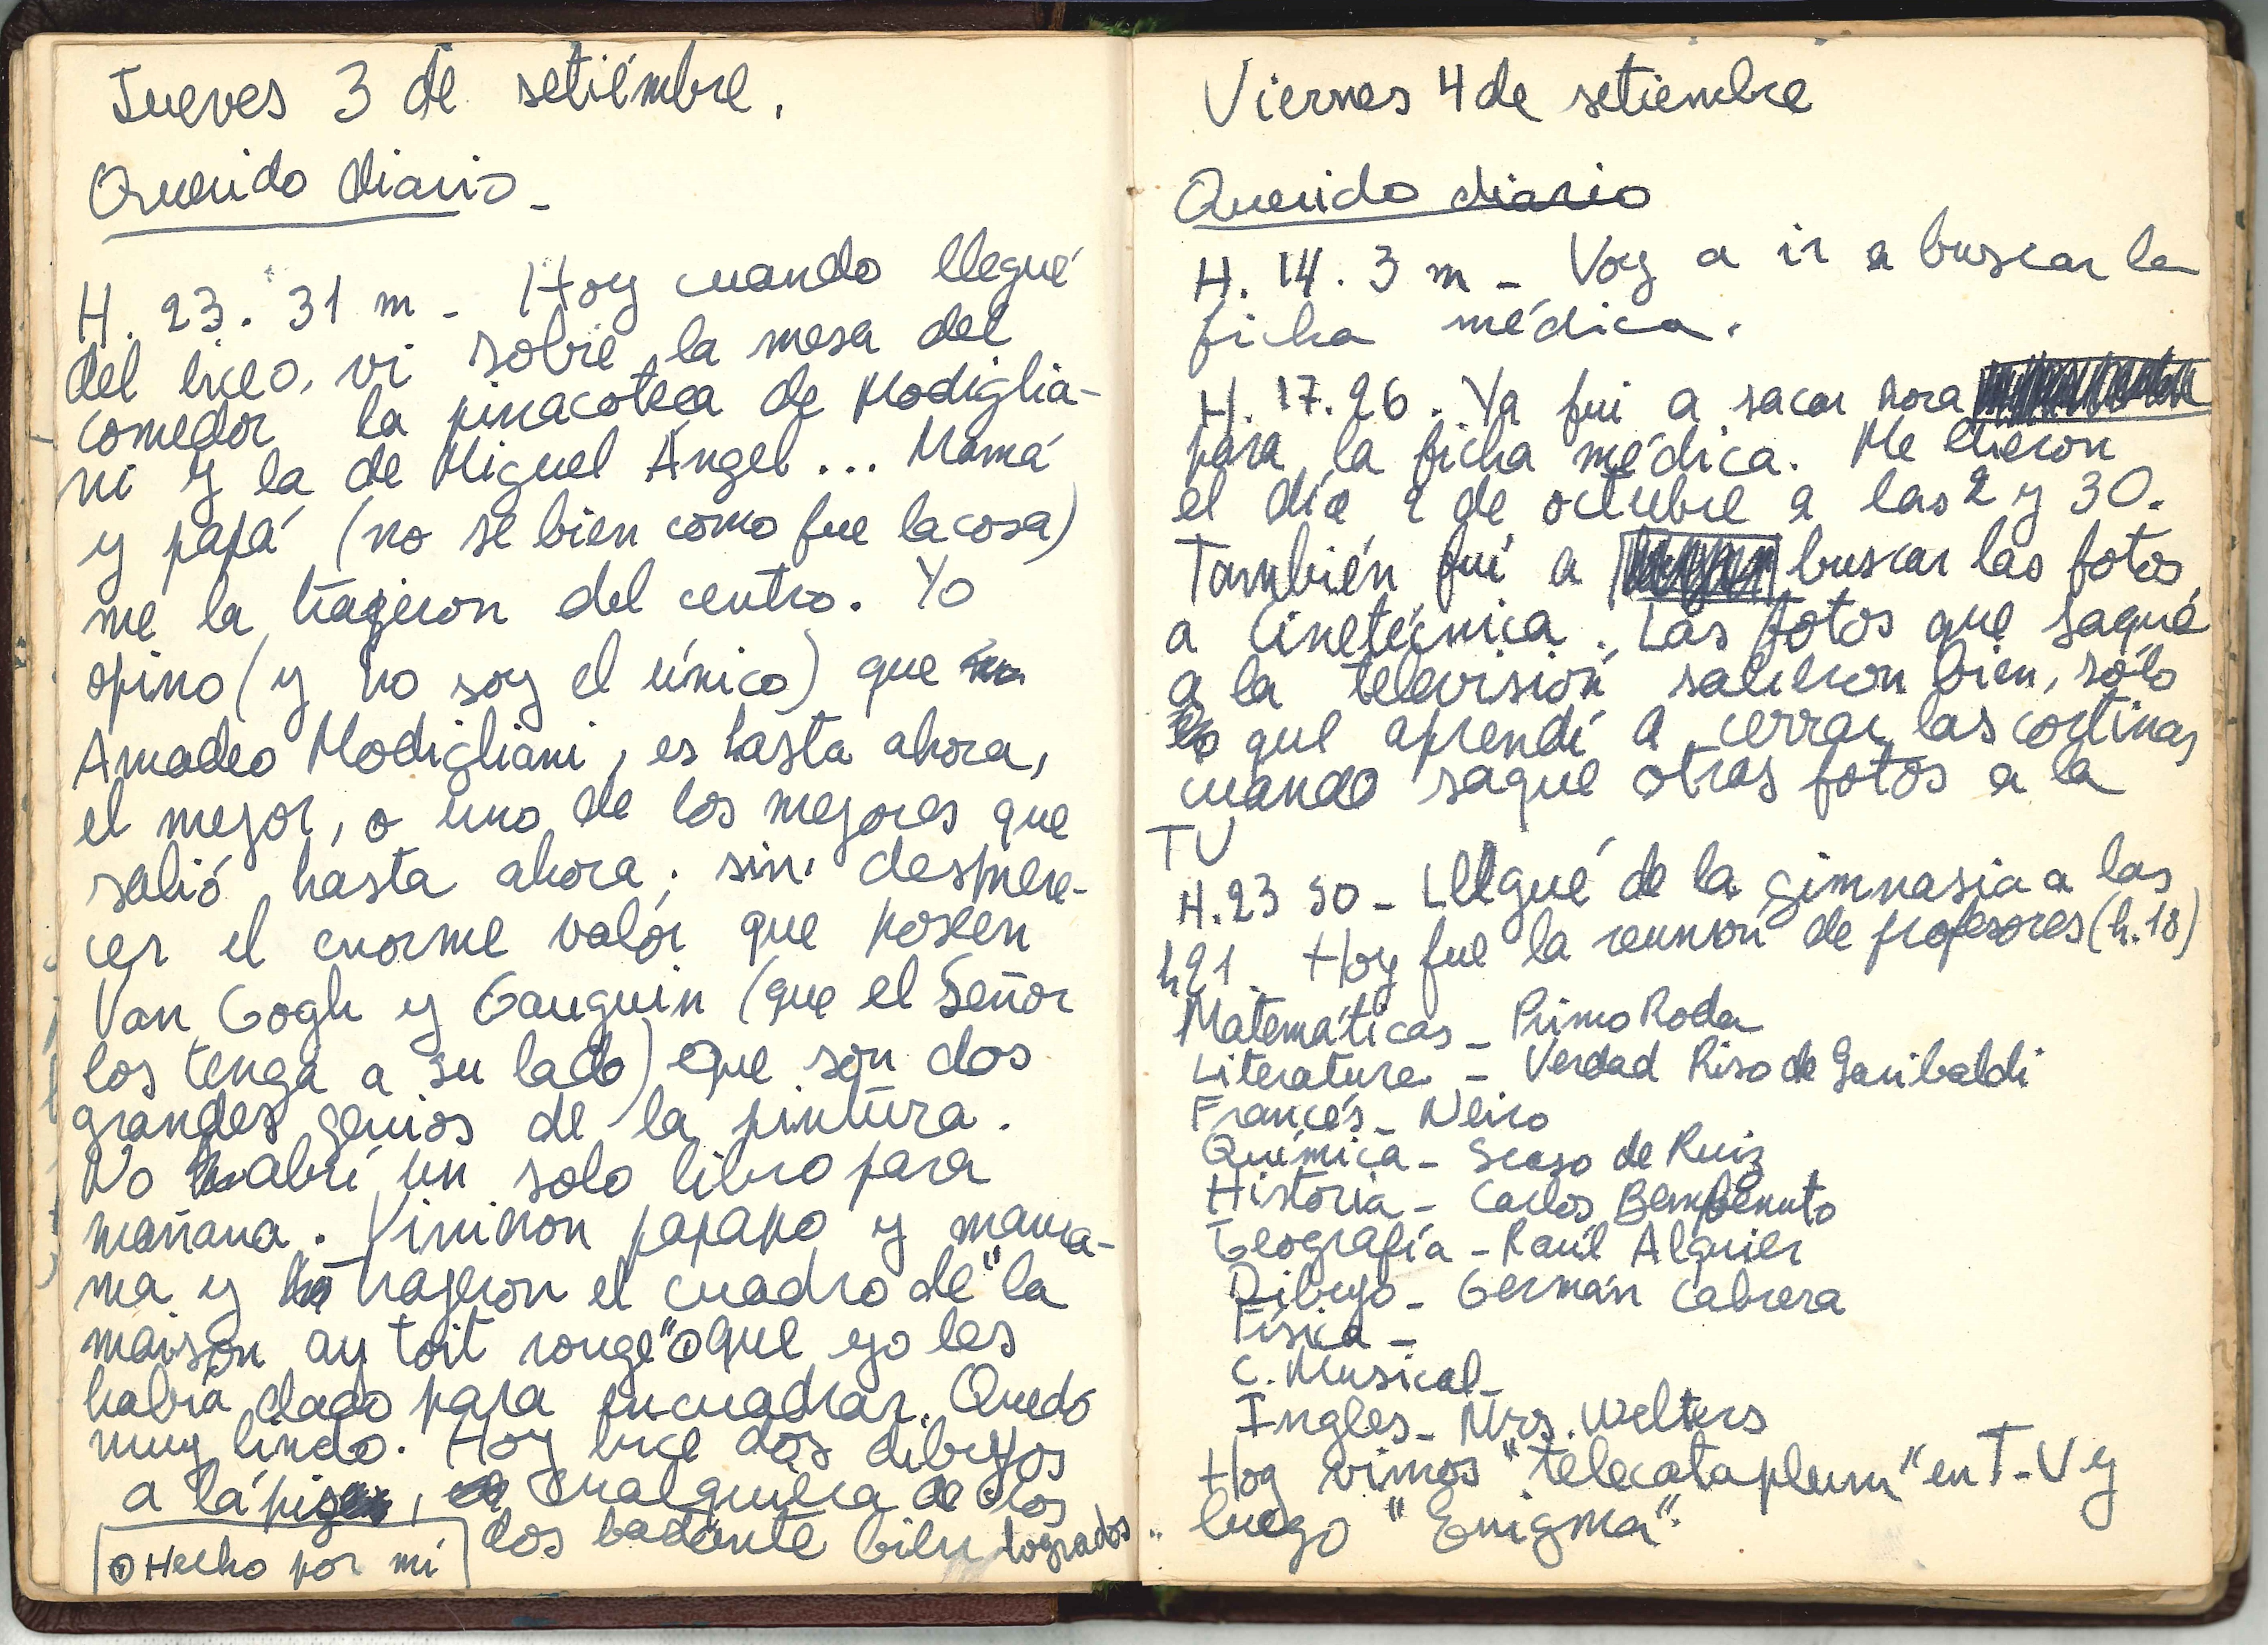 Jueves 3 de setiémbre.
Querido diario_
H. 23. 31 m - Hoy cuando llegué
del liceo, vi sobre la mesa del
comedor la pinacoteca de Modiglia-
ni y la de Miguel Ángel... Mamá
y papá (no se bien como fue la cosa)
me la trageron del centro. Yo
opino (y no soy el único) que
Amadeo Modigliani, es hasta ahora,
el mejor, o uno de los mejores que
salió hasta ahora; sin desmere-
cer el enorme valor que poseen
Van Gogh y Gauguin (que el Señor
los tenga a su lado) Que son dos
grandes genios de la pintura.
No abrí un solo libro para
mañana. Vinieron papapo y mama-
ma y trageron el cuadro de "la
maison au toit rouge" que yo les
había dado para encuadrar. Quedó
muy lindo. Hoy hice dos dibujos
a lápiz, cualquiera de los
dos bastante bien logrados
Hecho por mi
Viernes 4 de setiembre
Querido diario
H. 14. 3 m - Voy a ir a buscar la
ficha médica.
H. 17. 26. Ya fui a sacar hora
para la ficha médica. Me dieron
el día 2 de octubre a las 2 y 30.
También fui a buscar las fotos
a Cinetécnica. Las fotos que saqué
a la televisión salieron bien, sólo
que aprendí a cerrar las cortinas
cuando saque otras fotos a la
TV
H. 23 50 - Llegué de la gimnasia a las
h 21. Hoy fue la reunión de profesores (h. 18)
Matemáticas - Primo Roda
Literatura - Verdad Riso de Garibaldi
Francés - Neiro
Química - Scaso de Ruiz
Historia - Carlos Bembenuto
Geografía - Raúl Alguier
Dibujo - Germán Cabrera
Física -
C. Musical -
Ingles - Mrs. Welters
Hoy vimos "telecataplum" en T-V y
luego "Enigma".